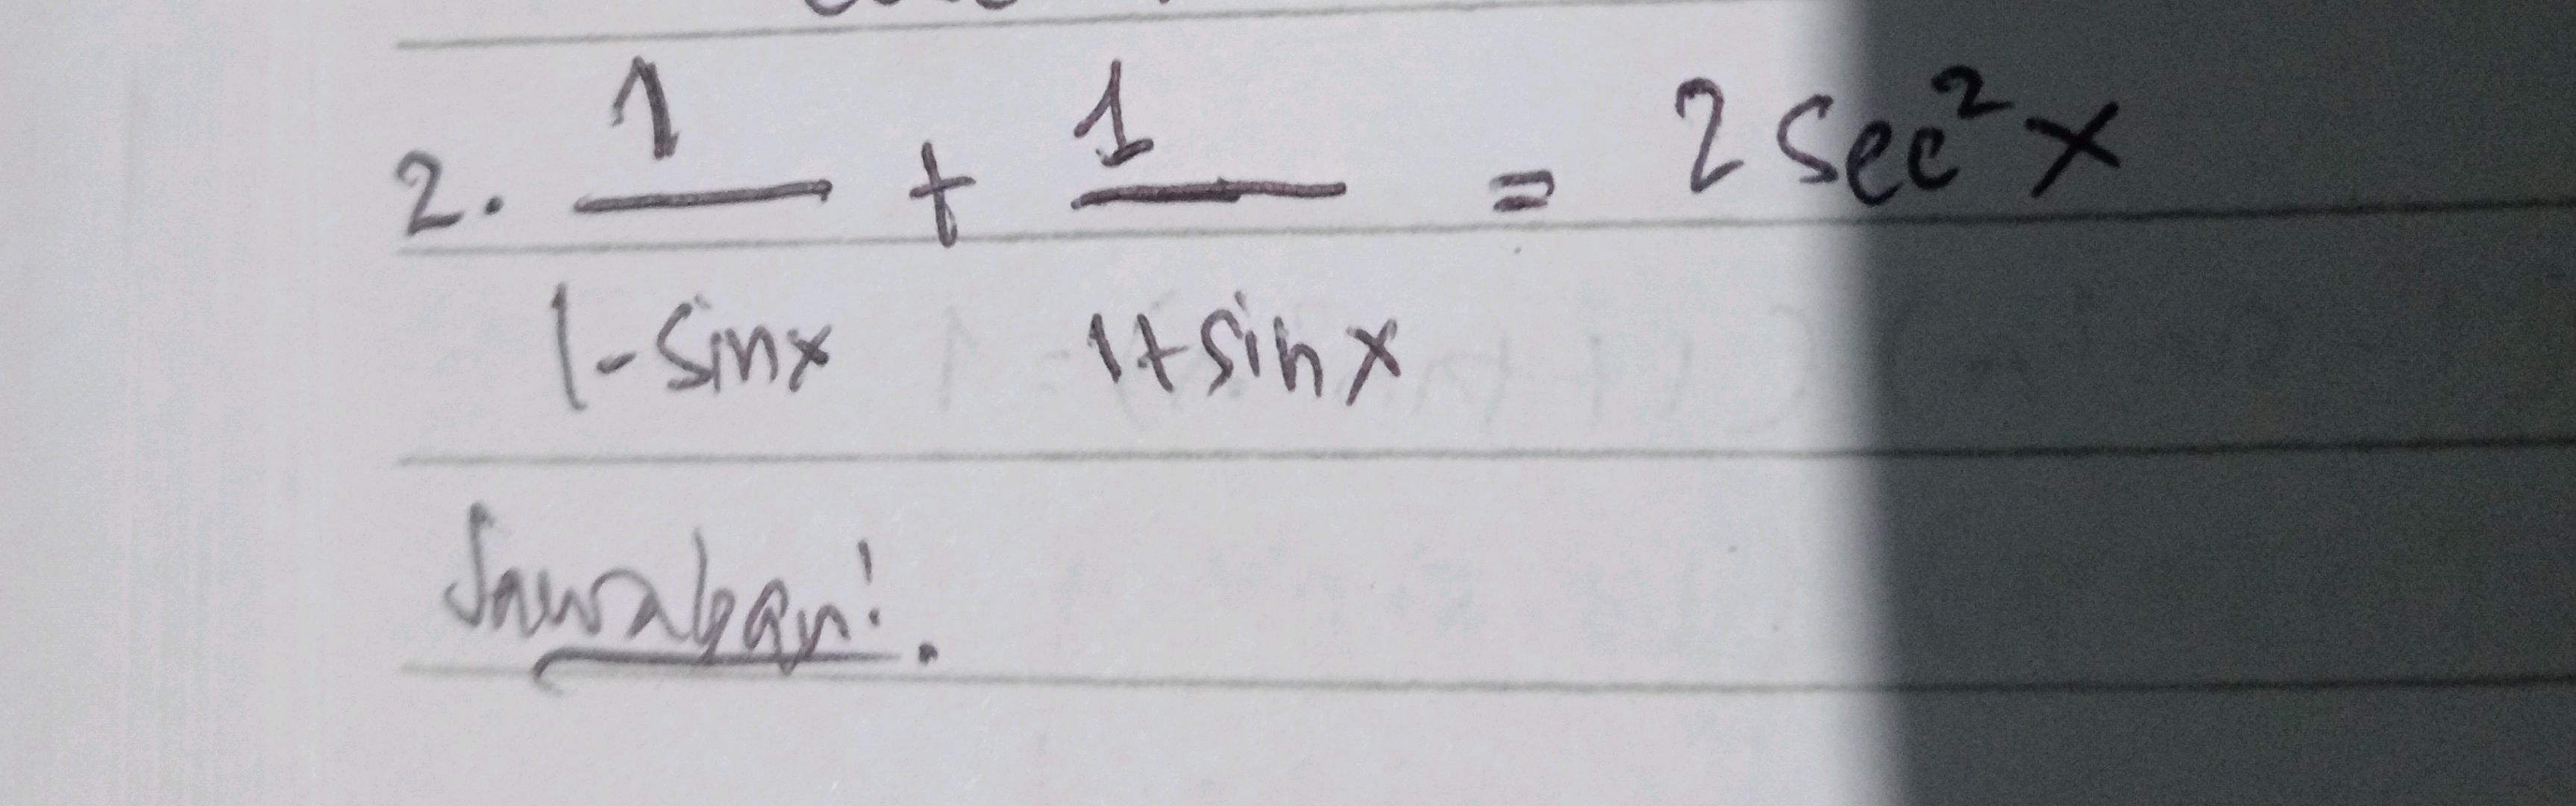 2. 1/(1-sinx) + 1/(1+sinx) = 2 sec²x
Jawaban:.